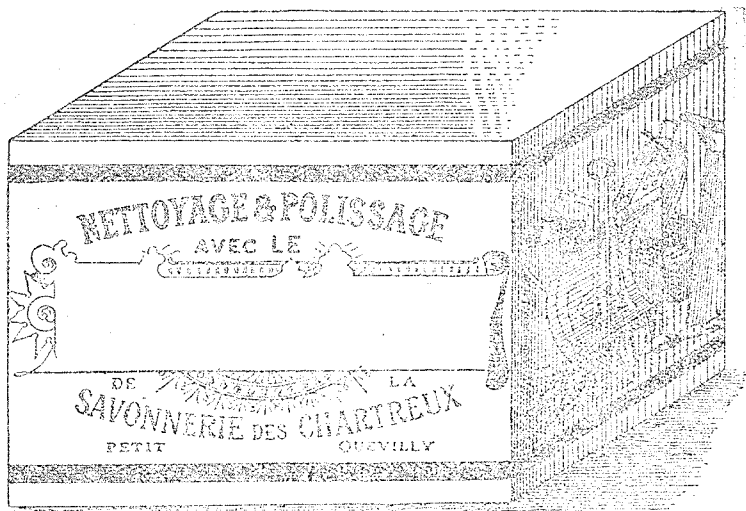 NETTOYAGE & POLISSAGE
AVEC LE
DE LA
SAVONNERIE DES CHARTREUX
PETIT QUEVILLY